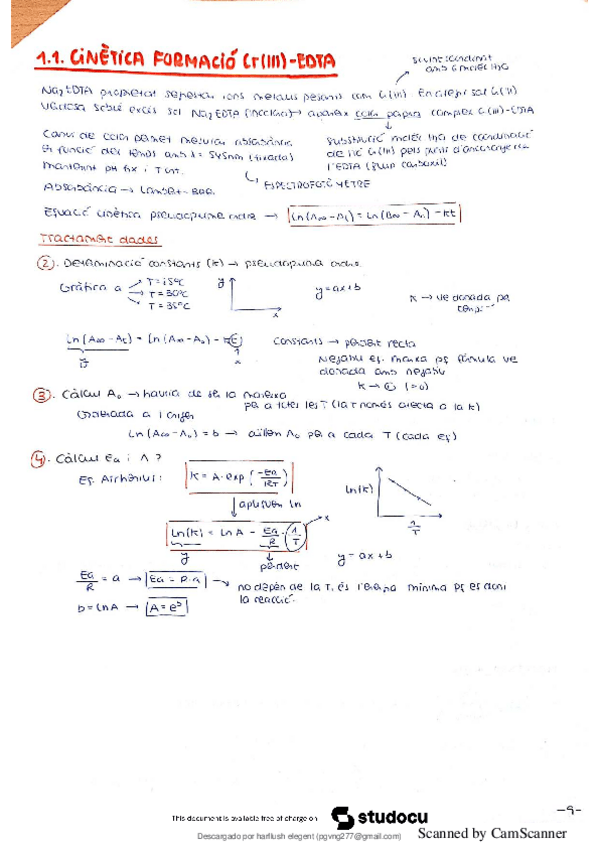 1.1. CINÈTICA FORMACIÓ Cr(III)-EDTA
Na2EDTA propietat segrestar ions metalls pesants com Cr(III). En afegir sal Cr(III)
violosa sobre excés sal Na2EDTA (incolora) → apareix color púrpura complex Cr(III)-EDTA
Canvi de color permet mesurar absorbància
en funció del temps amb λ = 545nm (fixada)
mantenint pH fix i T cnt.
↳ ESPECTROFOTÒMETRE
substitució molèc H2O de coordinació
de l'ió Cr(III) pels punts d'ancoratge de
l'EDTA (grups carboxil)
Absorbància → Lambert-Beer
Equació cinètica pseudoprimer ordre → ln(A∞ - At) = ln(A∞ - A0) - kt
Tractament dades
2. Determinació constants (k) → pseudoprimer ordre.
Gràfica a → T = 15ºC
→ T = 30ºC
→ T = 35ºC
y
x
y = ax + b
k → ve donada pe
ln(A∞ - At) = ln(A∞ - A0) - kt
y
x
constants → pendent recta
Negatiu eq. mateixa pq fórmula ve
donada amb negatiu
3. Càlcul A0 → hauria de ser la mateixa
per a totes les T (la T només afecta a la k)
Ordenada a l'origen
ln(A∞ - A0) = b → aïllem A0 per a cada T (cada eq)
4. Càlcul Ea i A ?
Eq. Arrhenius:
k = A · exp(-Ea/RT)
↓ apliquem ln
ln(k) = ln A - Ea/R · 1/T
x
y
pendent
ln(k)
1/T
y = ax + b
Ea/R = a → Ea = R·a → no depèn de la T, és l'energia mínima pq es doni
la reacció.
b = lnA → A = e^b
-9-
This document is available free of charge on
studocu
Descargado por harflush elegent (pgvng277@gmail.com)
Scanned by CamScanner